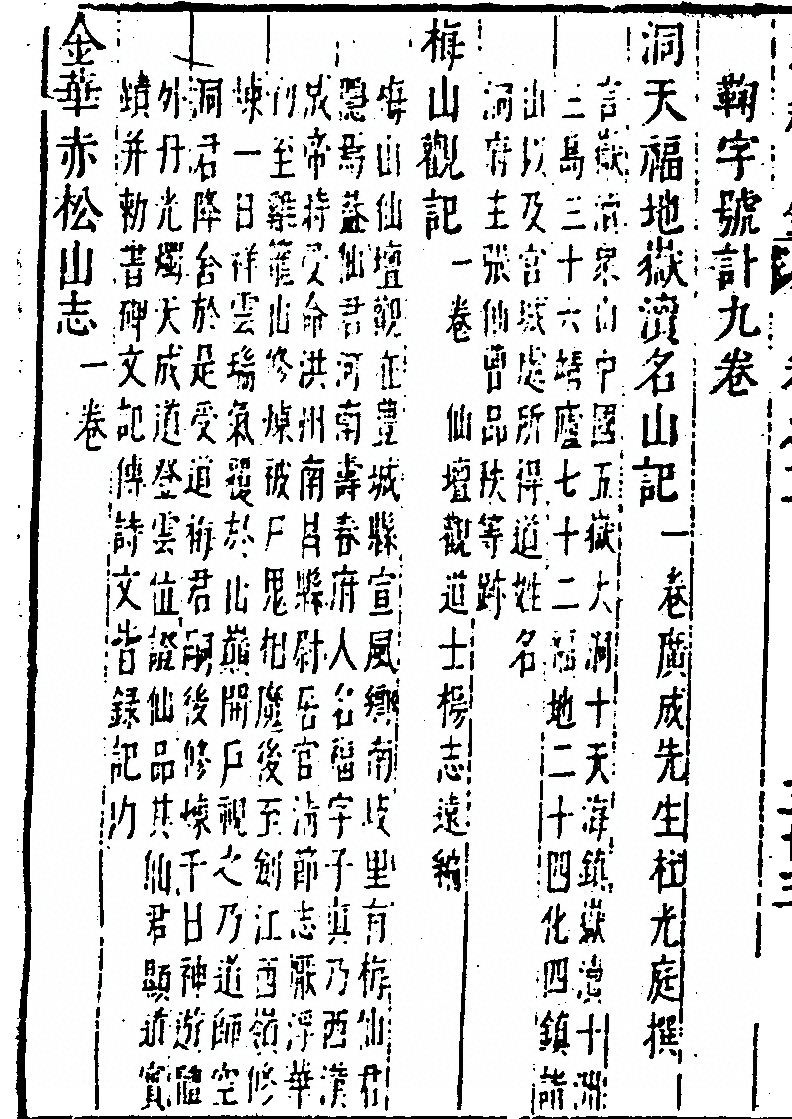 鞠字號計九卷
洞天福地嶽瀆名山記一卷廣成先生杜光庭撰
言嶽瀆衆山中國五嶽大洞十天海鎮嶽瀆十洲
三島三十六靖廬七十二福地二十四化四鎮諸
山以及宮城處所得道姓名
洞府主張仙曹品秩等跡
梅山觀記一卷 仙壇觀道士楊志遠編
梅山仙壇觀在豐城縣宣風鄉南歧里有梅仙君
隱焉葢仙君河南壽春府人名福字子真乃西漢
成帝時受命洪州南昌縣尉居官清節志厭浮華
行至雞籠山修煉被尸鬼相魔後至劍江西嶺修
煉一日祥雲瑞氣覆於山巔開戶視之乃道師空
洞君降舍於是受道梅君嗣後修煉千日神遊體
外丹光燭天成道登雲位證仙品其仙君顯道實
蹟并勅書碑文記傳詩文皆録記內
金華赤松山志一卷